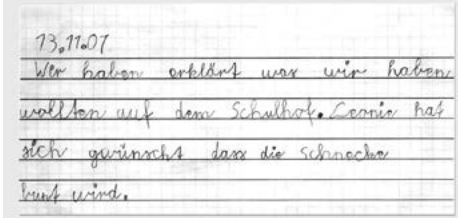 13.11.07
Wir haben erklärt was wir haben
wollten auf dem Schulhof. Leonie hat
sich gewünscht dass die Schnecke
bunt wird.